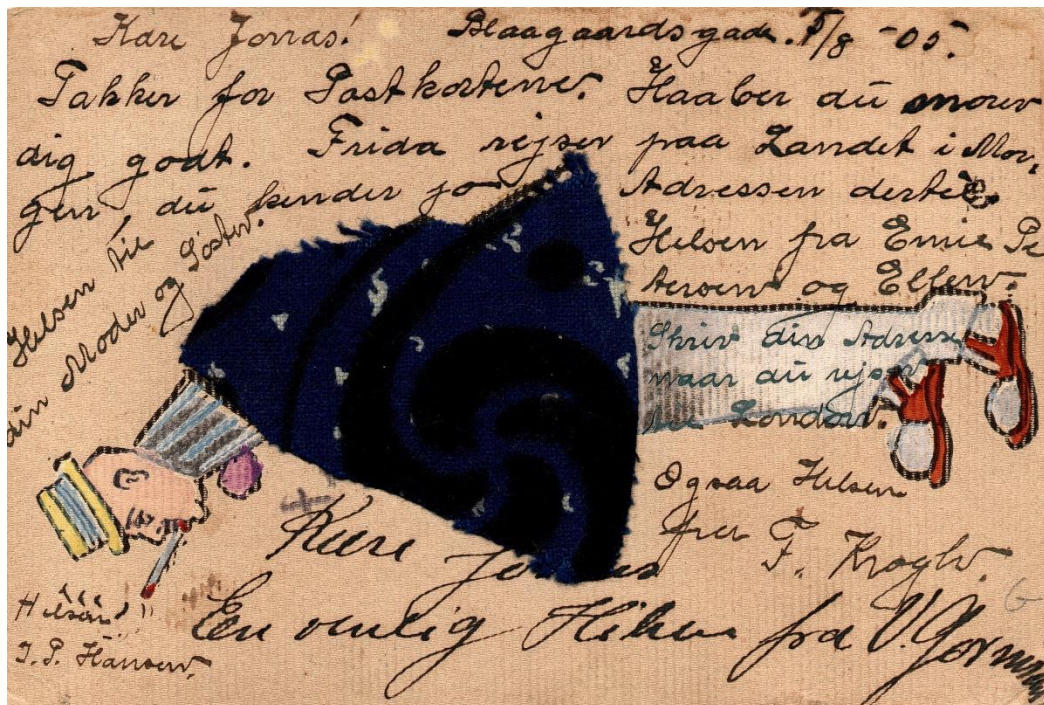 Kære Jonas! Blaagaardsgade. 5/8 - 05.
Takker for Postkortene. Haaber du morer
dig godt. Frida rejser paa Landet i Mor,
gen, du kender jo Adressen dertil.
Helsen fra Emie Pe
tersen og Ellen.
Helsen til
din Moder og Søster.
Skriv din Adresse
naar du rejser
til London.
Ogsaa Helsen
fra F. Krogh.
Kære Jonas
En venlig Hilsen fra V.
Hilsen!
J. P. Hansen.